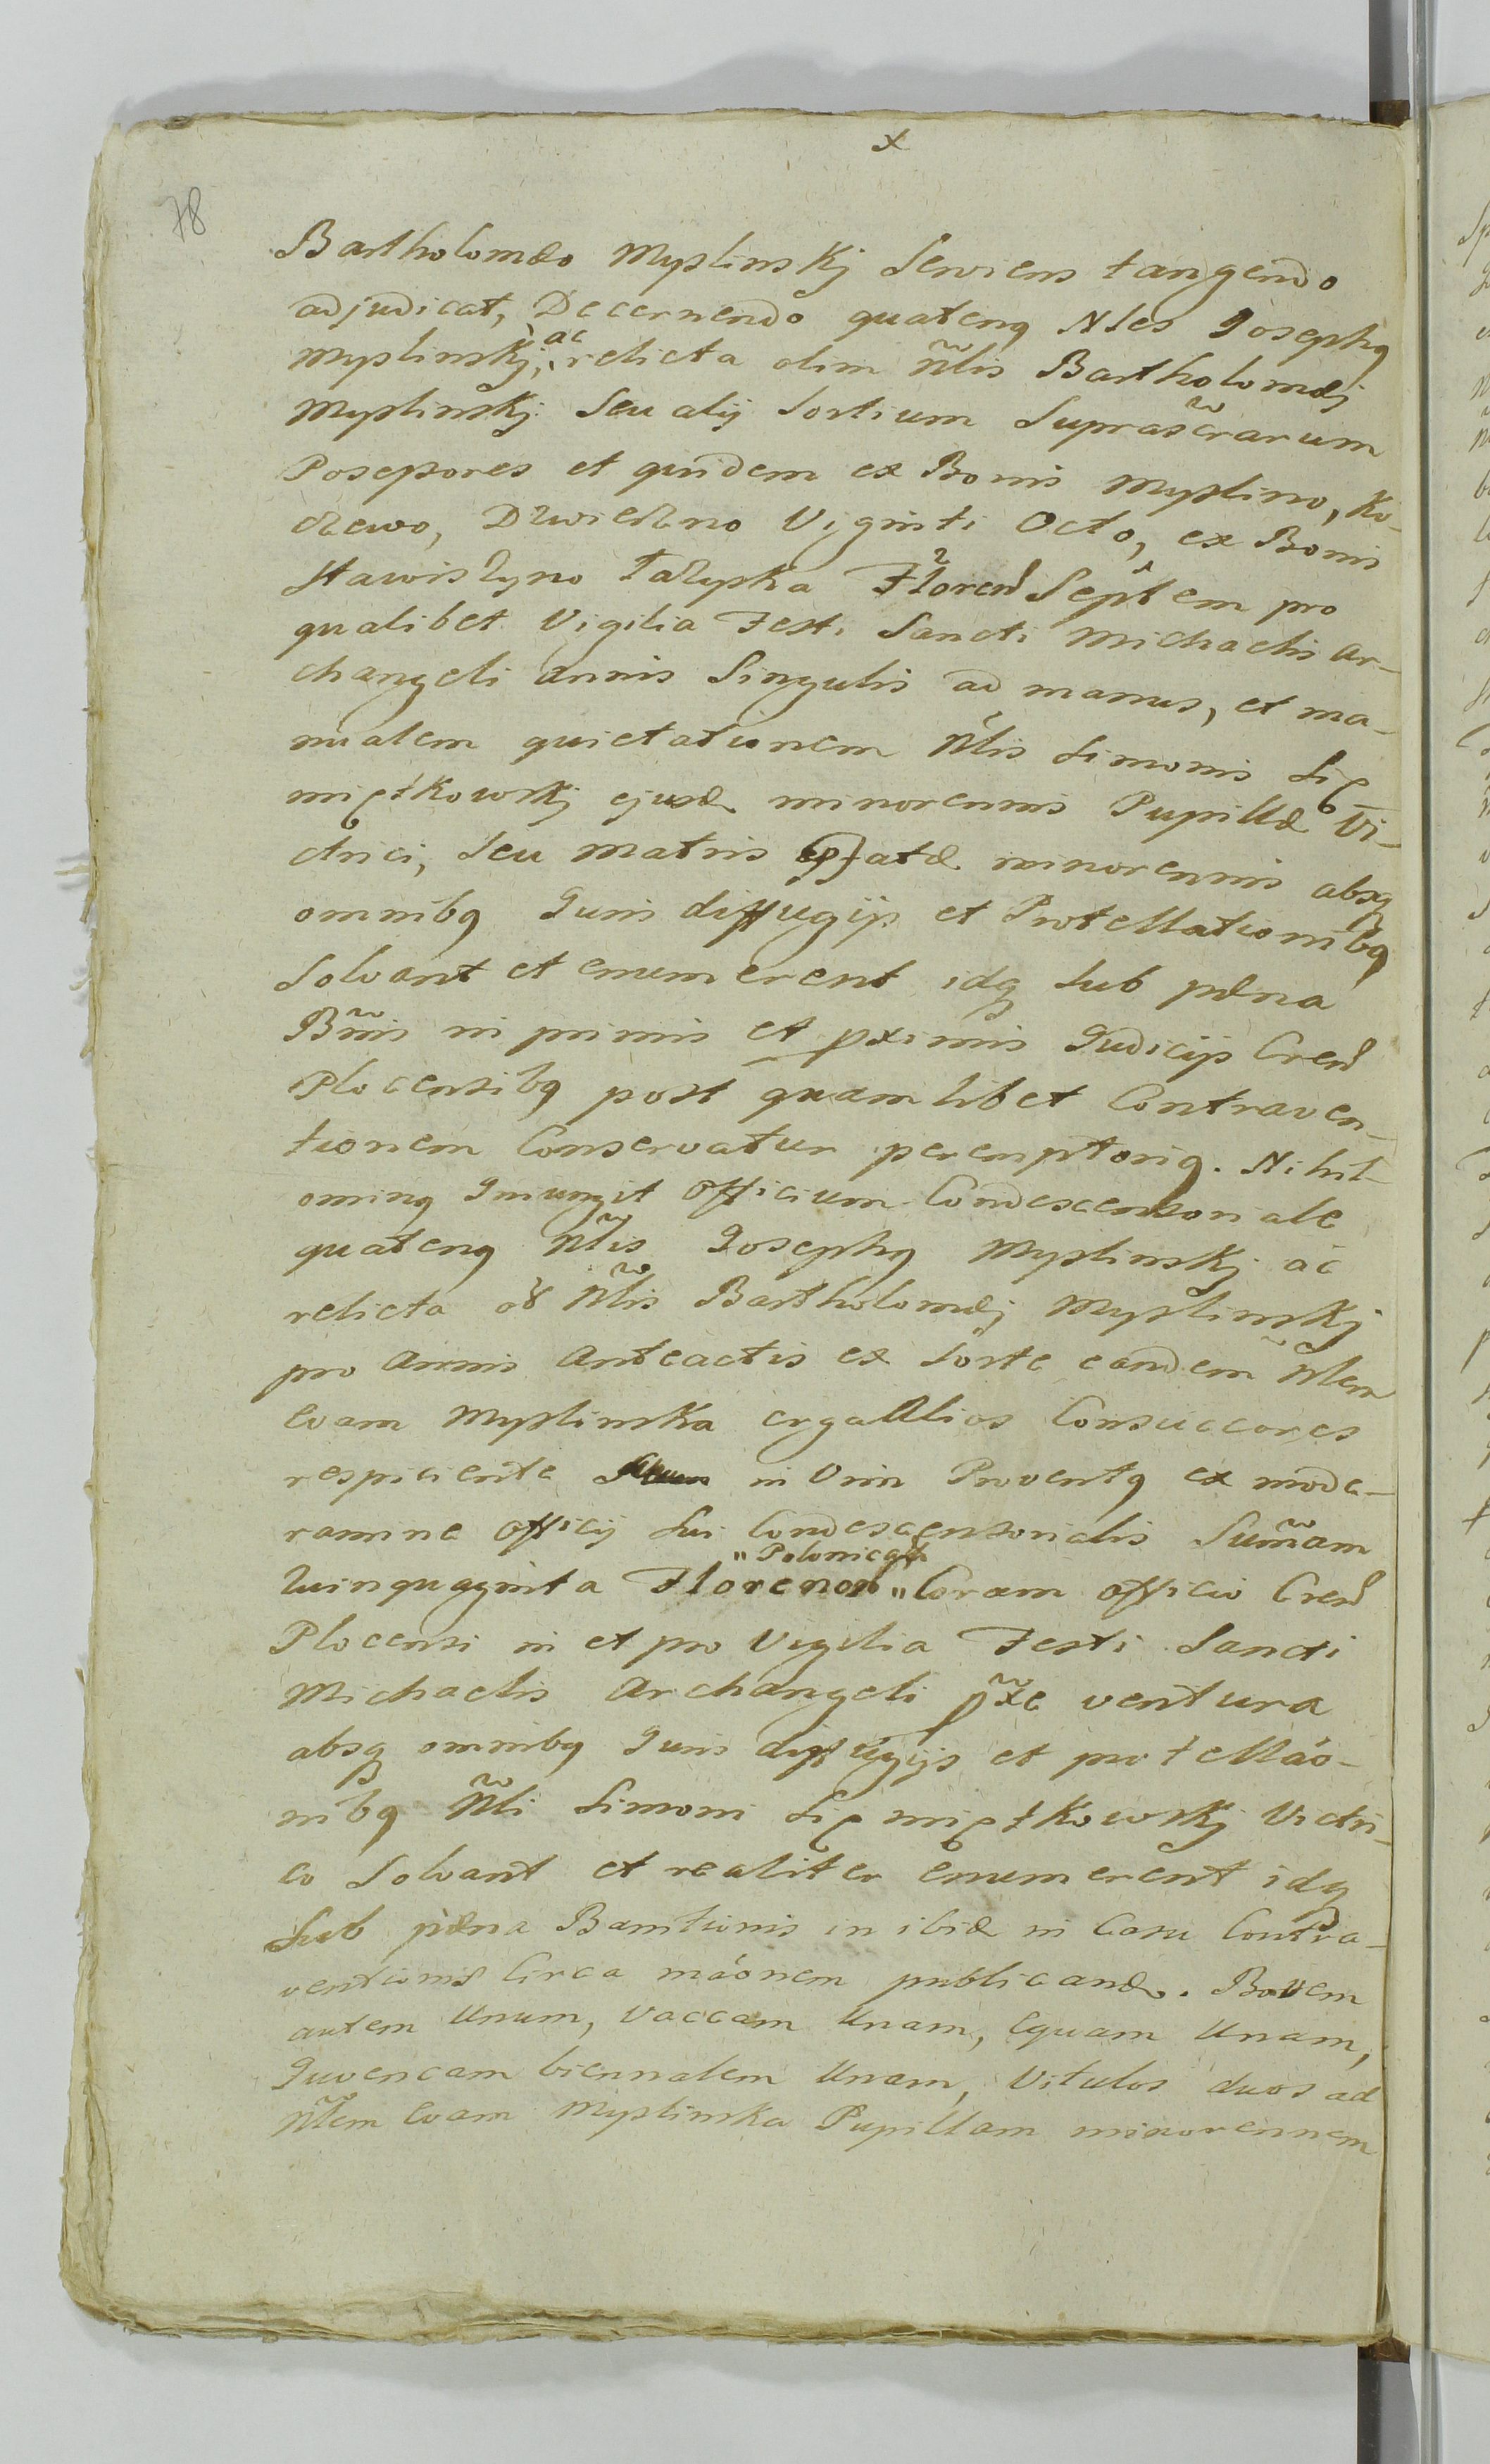 x
78
Bartholomæo Myslinskj Serviens tangendo
adjudicat, Decernendo quatenq Nles Josephq
Myslinskj, ac relicta olim Nlis Bartholomæj
Myslinskj Seu alij Sortium Suprascrarum
Possessores et quidem ex Bonis Myslino, Ko-
Viginti Octo, ex Bonis
Florend Septem pro
qualibet Vigilia Festi Sancti Michaelis Ar-
changeli annis Singulis ad manus, et ma-
nualem quietationem Nlis Simonis Się-
miętkowskj ejusd minorennis Pupillæ Vi-
ctrici, Seu Matris minorennis absq
omnibq Juris diffugijs et Protellationibq
Solvant et enumerent idq Sub pæna
Bnnis in primis et pximis Judicijs Crend
Plocensibq post quamlibet Contraven-
tionem Conservatur peremptoriq. Nihil-
ominq Iniungit Officium Condescensoriale
quatenq Nlis Josephq Myslinskj ac
relicta od Nlis Bartholomæj Myslinskj
pro Annis Anteactis ex Sorte eandem Nlem
Evam Myslinska erga Alios Consuccores
respiciente in Vim Proventq ex mode-
ramine Officij Sui Condescensorialis Sumam
quinquaginta Florenor "Polonical" Coram Officio Crend
Plocensi in et pro Vigilia Festi Sancti
Michaelis Archangeli pxe ventura
absq omnibq Juris diffugijs et protellao-
nibq Nli Simoni Sięmiętkowskj Victri-
co Solvant et realiter enumerent idq
Sub pæna Bannitionis in ibid in Casu Contra-
ventionis Circa maonem publicand. Bovem
autem Unum, Vaccam Unam, Equam Unam,
Juvencam biennalem Unam, Vitulos duos ad
Nlem Evam Myslinska Pupillam minorennem